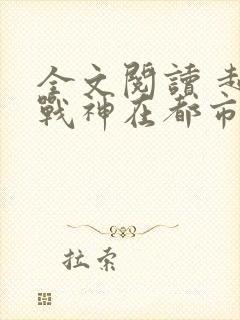 全文閱讀
戰神在都市
拉索